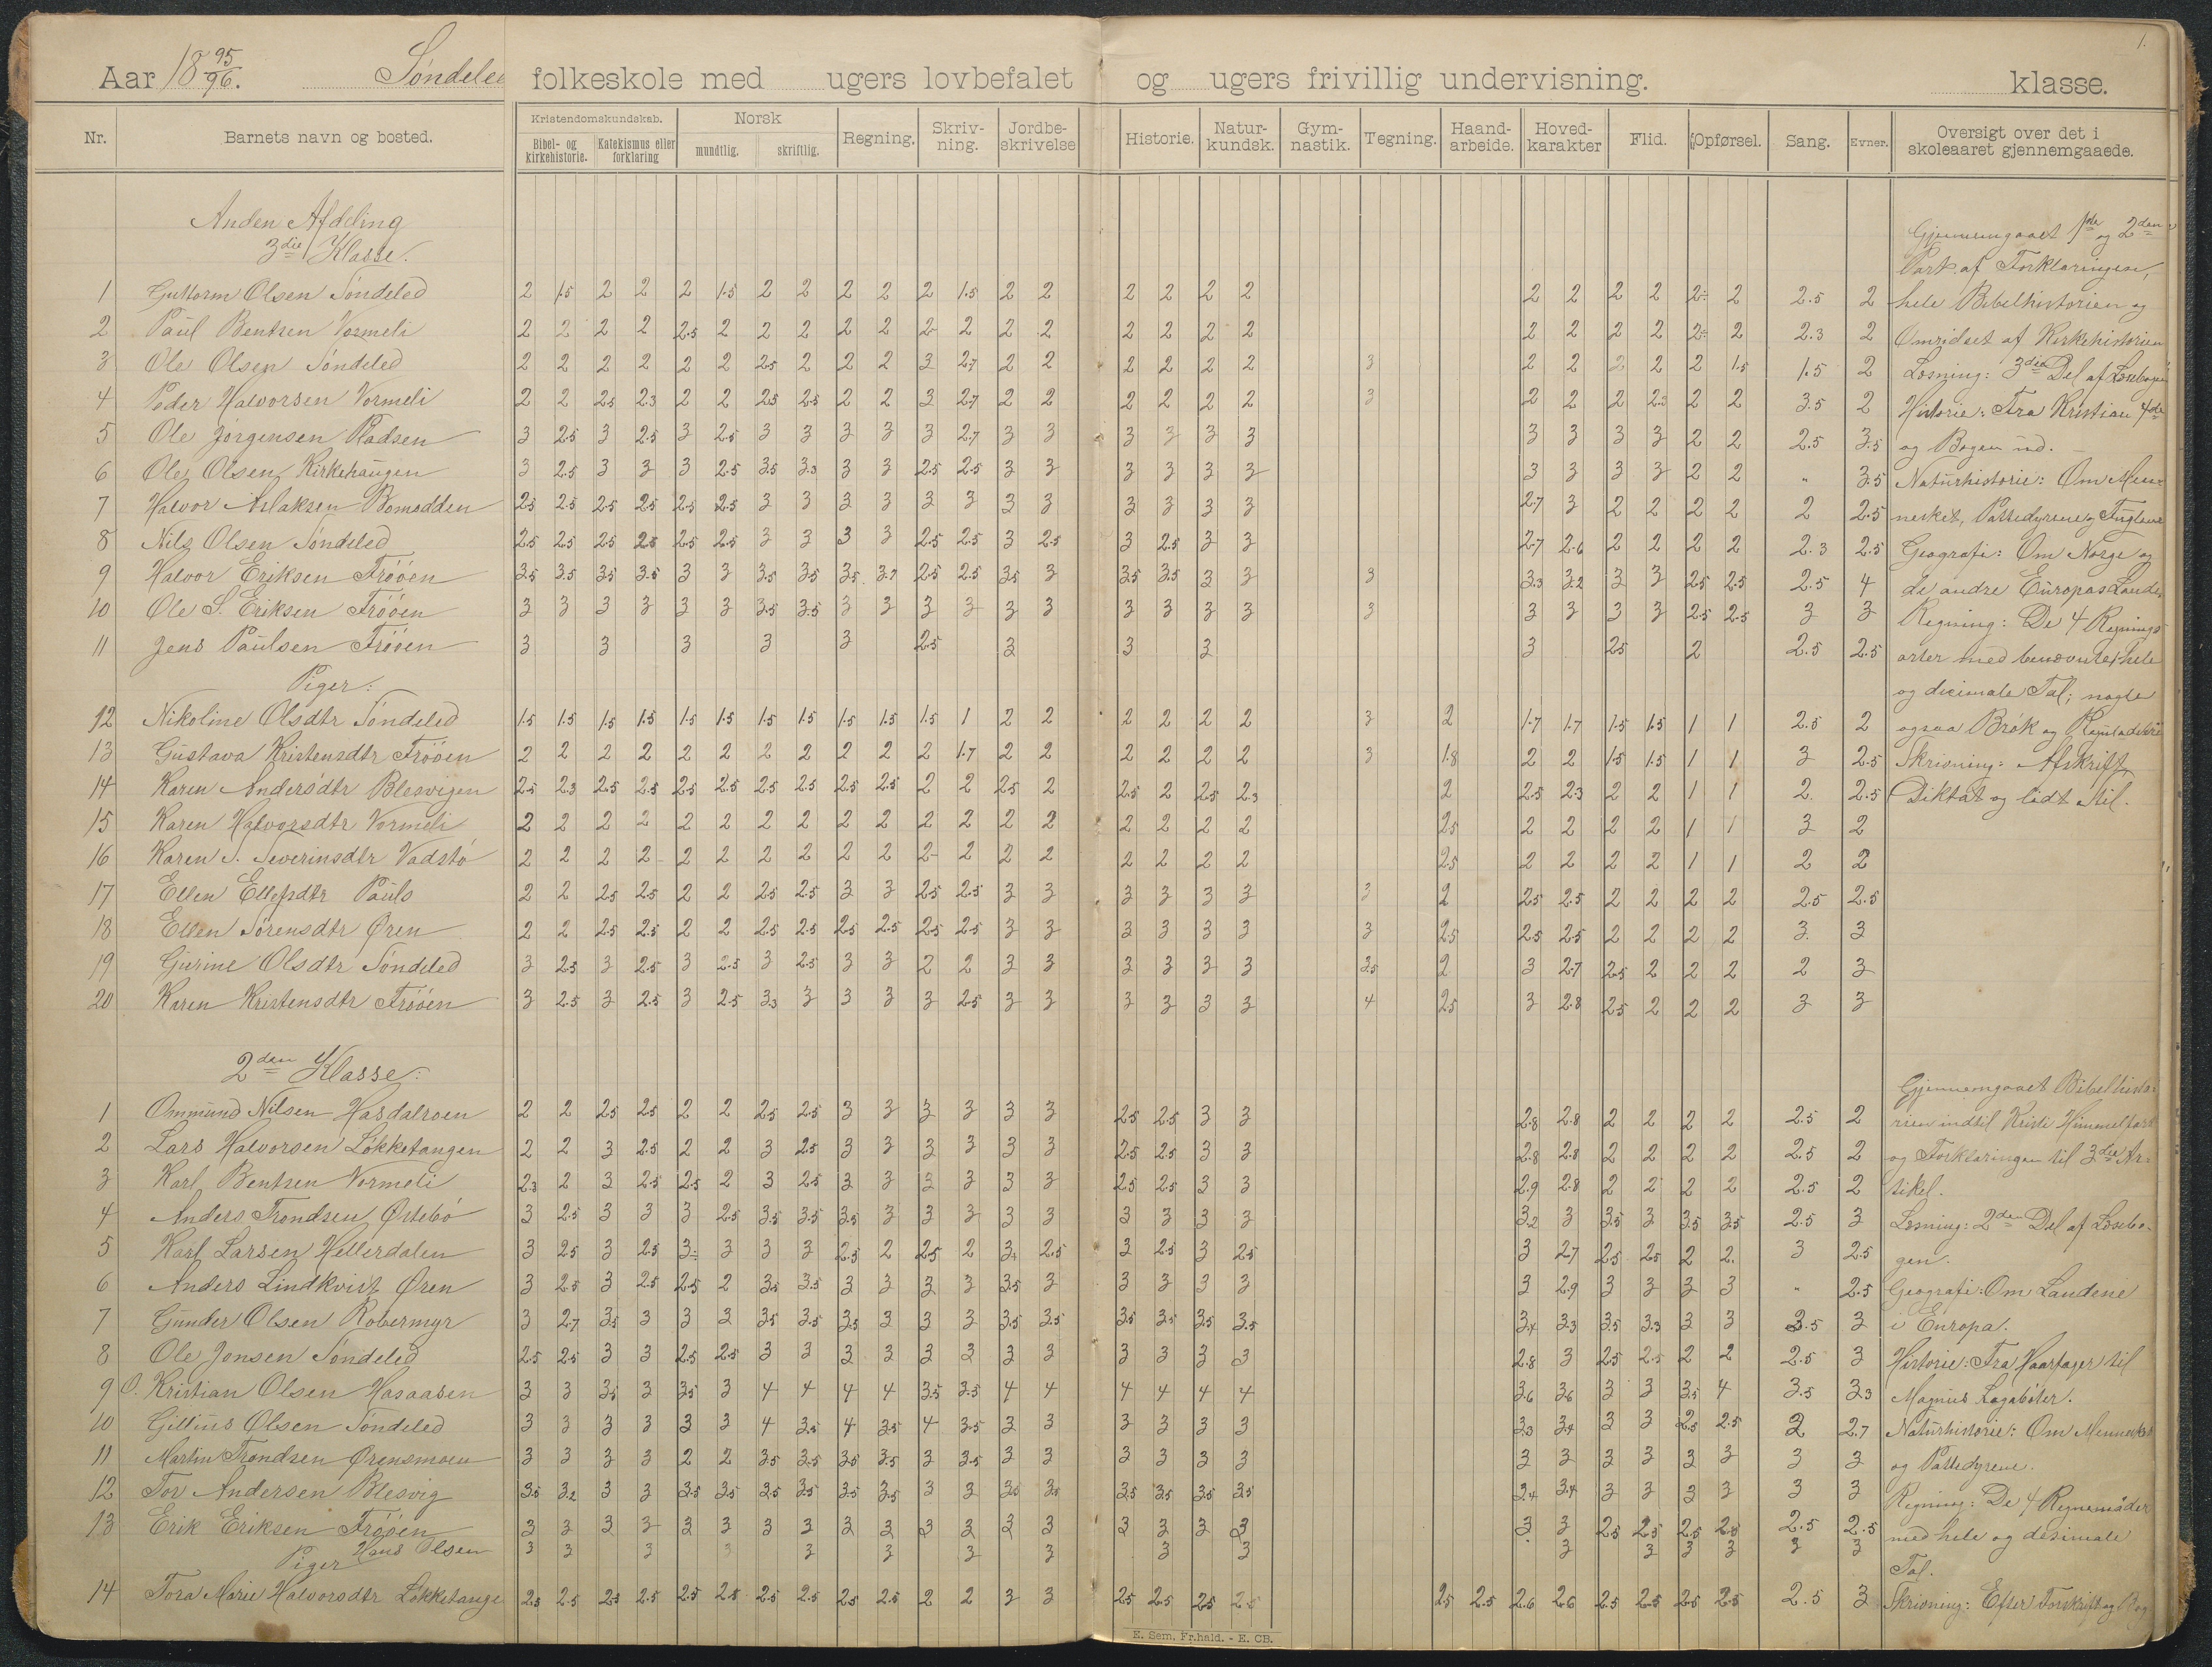 1.
Aar 18 95/96. Søndeled folkeskole med ugers lovbefalet og ugers frivillig undervisning. klasse.
Nr. Barnets navn og bosted. Kristendomskundskab. Bibel- og kirkehistorie. Katekismus eller forklaring Norsk mundtlig. skriftlig. Regning. Skriv-ning. Jordbe-skrivelse Historie. Natur-kundsk. Gym-nastik. Tegning. Haand-arbeide. Hoved-karakter Flid. Opførsel. Sang. Evner. Oversigt over det i skoleaaret gjennemgaaede.
Anden Afdeling
3die Klasse.
1 Guttorm Olsen Søndeled 2 1.5 2 2 2 1.5 2 2 2 2 2 1.5 2 2 2 2 2 2 2 2 2 2 2 2 2.5 2
2 Paul Bentsen Vormeli 2 2 2 2 2.5 2 2 2 2 2 2 2 2 2 2 2 2 2 2 2 2 2 2 2 2.3 2
3 Ole Olsen Søndeled 2 2 2 2 2 2 2.5 2 2 2 3 2.7 2 2 2 2 2 2 3 2 2 2 2 2 1.5 1.5 2
4 Peder Halvorsen Vormeli 2 2 2.5 2.3 2 2 2.5 2.5 2 2 3 2.7 2 2 2 2 2 2 3 2 2 2 2.5 2 2 3.5 2
5 Ole Jørgensen Pladsen 3 2.5 3 2.5 3 2.5 3 3 3 3 3 2.7 3 3 3 3 3 3 3 3 3 3 2 2 2.5 3.5
6 Ole Olsen Kirkehaugen 3 2.5 3 3 3 2.5 3.5 3.3 3 3 2.5 2.5 3 3 3 3 3 3 3 3 3 3 2 2 " 3.5
7 Halvor Aslaksen Bomodden 2.5 2.5 2.5 2.5 2.5 2.5 3 3 3 3 3 3 3 3 3 3 3 3 2.7 3 2 2 2 2 2 2.5
8 Nils Olsen Søndeled 2.5 2.5 2.5 2.5 2.5 2.5 3 3 3 3 2.5 2.5 3 2.5 3 2.5 3 3 2.7 2.6 2 2 2 2 2.3 2.5
9 Halvor Eriksen Frøøen 3.5 3.5 3.5 3.5 3 3 3.5 3.5 3.5 3.7 2.5 2.5 3.5 3 3.5 3.5 3 3 3 3.3 3.2 3 3 2.5 2.5 2.5 4
10 Ole S. Eriksen Frøöen 3 3 3 3 3 3 3.5 3.5 3 3 3 3 3 3 3 3 3 3 3 3 3 3 3 2.5 2.5 3 3
11 Jens Paulsen Frøöen 3 3 3 3 3 2.5 3 3 3 3 2.5 2 2.5 2.5
Piger:
12 Nikoline Olsdtr Søndeled 1.5 1.5 1.5 1.5 1.5 1.5 1.5 1.5 1.5 1.5 1.5 1 2 2 2 2 2 2 3 2 1.7 1.7 1.5 1.5 1 1 2.5 2
13 Gustava Kristensdtr Frøöen 2 2 2 2 2 2 2 2 2 2 2 1.7 2 2 2 2 2 2 3 1.8 2 2 1.5 1.5 1 1 3 2.5
14 Karen Andersdtr Blesvigen 2.5 2.3 2.5 2.5 2.5 2.5 2.5 2.5 2.5 2.5 2 2 2.5 2 2.5 2 2.5 2.3 2 2.5 2.3 2 2 1 1 2 2.5
15 Karen Halvorsdtr Vormeli 2 2 2 2 2 2 2 2 2 2 2 2 2 2 2 2 2 2 2.5 2 2 2 2 1 1 3 2
16 Karen S. Severinsdtr Vadstø 2 2 2 2 2 2 2 2 2 2 2 2 2 2 2 2 2 2 2.5 2 2 2 2 1 1 2 2
17 Ellen Ellefsdtr Pauls 2 2 2.5 2.5 2 2 2.5 2.5 3 3 2.5 2.5 3 3 3 3 3 3 3 2 2.5 2.5 2 2 2 2 2.5 2.5
18 Ellen Sørensdtr Øren 2 2 2.5 2.5 2 2 2.5 2.5 2.5 2.5 2.5 2.5 3 3 3 3 3 3 3 2.5 2.5 2.5 2 2 2 2 3 3
19 Gurine Olsdtr Søndeled 3 2.5 3 2.5 3 2.5 3 2.5 3 3 2 2 3 3 3 3 3 3 3.5 2 3 2.7 2.5 2 2 2 2 3
20 Karen Kristensdtr Frøöen 3 2.5 3 2.5 3 2.5 3.3 3 3 3 3 2.5 3 3 3 3 3 3 4 2.5 3 2.8 2.5 2 2 2 3 3
Gjennemgaaet 1ste og 2den
Part af Forklaringen,
hele Bibelhistorien og
Omridset af Kirkehistorien
Læsning: 3die Del af Læsebogen
Historie: Fra Kristian 4de
og Bogen ud.
Naturhistorie: Om Men-
nesket, Pattedyrene og Fuglene
Geografi: Om Norge og
de andre Europas Lande.
Regning: De 4 Regnings-
arter med benævnte hele
og decimale Tal; nogle
ogsaa Brøk og
Skrivning: Afskrift,
Diktat og lidt Stil.
2den Klasse:
1 Ommund Nilsen Hasdalroen 2 2 2.5 2.5 2 2 2.5 2.5 3 3 3 3 3 3 2.5 2.5 3 3 2.8 2.8 2 2 2 2 2.5 2
2 Lars Halvorsen Løkketangen 2 2 3 2.5 2 2 3 2.5 3 3 3 3 3 3 2.5 2.5 3 3 2.8 2.8 2 2 2 2 2.5 2
3 Karl Bentsen Vormeli 2.3 2 3 2.5 2.5 2 3 2.5 3 3 3 3 3 3 2.5 2.5 3 3 2.9 2.8 2 2 2 2 2.5 2
4 Anders Trondsen Østebø 3 2.5 3 3 3 2.5 3.5 3.5 3.5 3 3 3 3 3 3 3 3 3 3.2 3 3.5 3 3.5 3.5 2.5 3
5 Karl Larsen Hellerdalen 3 2.5 3 2.5 3 3 3 3 2.5 2 2.5 2 3 2.5 3 2.5 3 2.5 3 2.7 2.5 2.5 2 2 3 2.5
6 Anders Lindkvist Øren 3 2.5 3 2.5 2.5 2 3.5 3.5 3 3 3 3 3.5 3 3 3 3 3 3 2.9 3 3 3 3 " 2.5
7 Gunder Olsen Røbermyr 3 2.7 3.5 3 3 3 3.5 3.5 3.5 3 3 3 3.5 3.5 3.5 3.5 3.5 3.5 3.4 3.3 3.5 3.3 3 3 3.5 3
8 Ole Jonsen Søndeled 2.5 2.5 3 3 2.5 2.5 3 3 3 3 3 3 3 3 3 3 3 3 2.8 3 2.5 2.5 2 2 2.5 3
9 O. Kristian Olsen Hasaasen 3 3 3.5 3 3.5 3 4 4 4 4 3.5 3.5 4 4 4 4 4 4 3.6 3.6 3 3 3.5 4 3.5 3.3
10 Gillius Olsen Søndeled 3 3 3 3 3 3 4 3.5 4 3.5 4 3.5 3 3 3 3 3 3 3.3 3.4 3 3 2.5 2.5 2 2.7
11 Martin Trondsen Ørensmoen 3 3 3 3 2 2 3.5 3.5 3.5 3.5 3 3.5 3 3 3 3 3 3 3 3 3 3 3 3 3 3
12 Tor Andersen Blesvig 3.5 3.2 3 3 3.5 3.5 3.5 3.5 3.5 3.5 3 3 3.5 3.5 3.5 3.5 3.5 3.5 3.4 3.4 3 3 3 3 3 3
13 Erik Eriksen Frøöen 3 3 3 3 3 3 3 3 3 3 3 3 3 3 3 3 3 3 3 3 2.5 2.5 2.5 2.5 2.5 2.5
Hans Olsen 3 3 3 3 3 3 3 3 3 3 3 3 3 3 3
Piger
14 Tora Marie Halvorsdtr Løkketange 2.5 2.5 2.5 2.5 2.5 2.5 2.5 2.5 2.5 2.5 2 2 3 3 2.5 2.5 2.5 2.5 2.5 2.5 2.6 2.6 2.5 2.5 2.5 2.5 2.5 3
Gjennemgaaet Bibelhisto-
rien indtil Kristi Himmelfart
og Forklaringen til 3die Ar-
tikel.
Læsning: 2den Del af Læsebo-
gen.
Geografi: Om Landene
i Europa.
Historie: Fra Haarfager til
Magnus Lagabøter.
Naturhistorie: Om Mennesket
og Pattedyrene.
Regning: De 4 Regnemåder
med hele og desimale
Tal.
Skrivning: Efter Forskrift og Bog
E. Sem. Fr.hald. - E. CB.